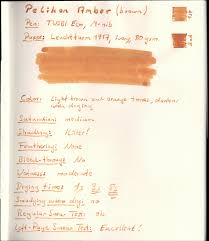 Pelikan Amber (brown)
Pen: TWSBI Eco, M-nib
Paper: Leuchtturm 1917, ivory, 80 gsm
Color: Light brown and orange tones, darker
with drying
Saturation: medium
Shading: Killer!
Feathering: None
Bleed-through: No
Wetness: moderate
Drying times:
Smudging when dry: no
Regular Smear Test: ok
Left-Page Smear Test: Excellent!